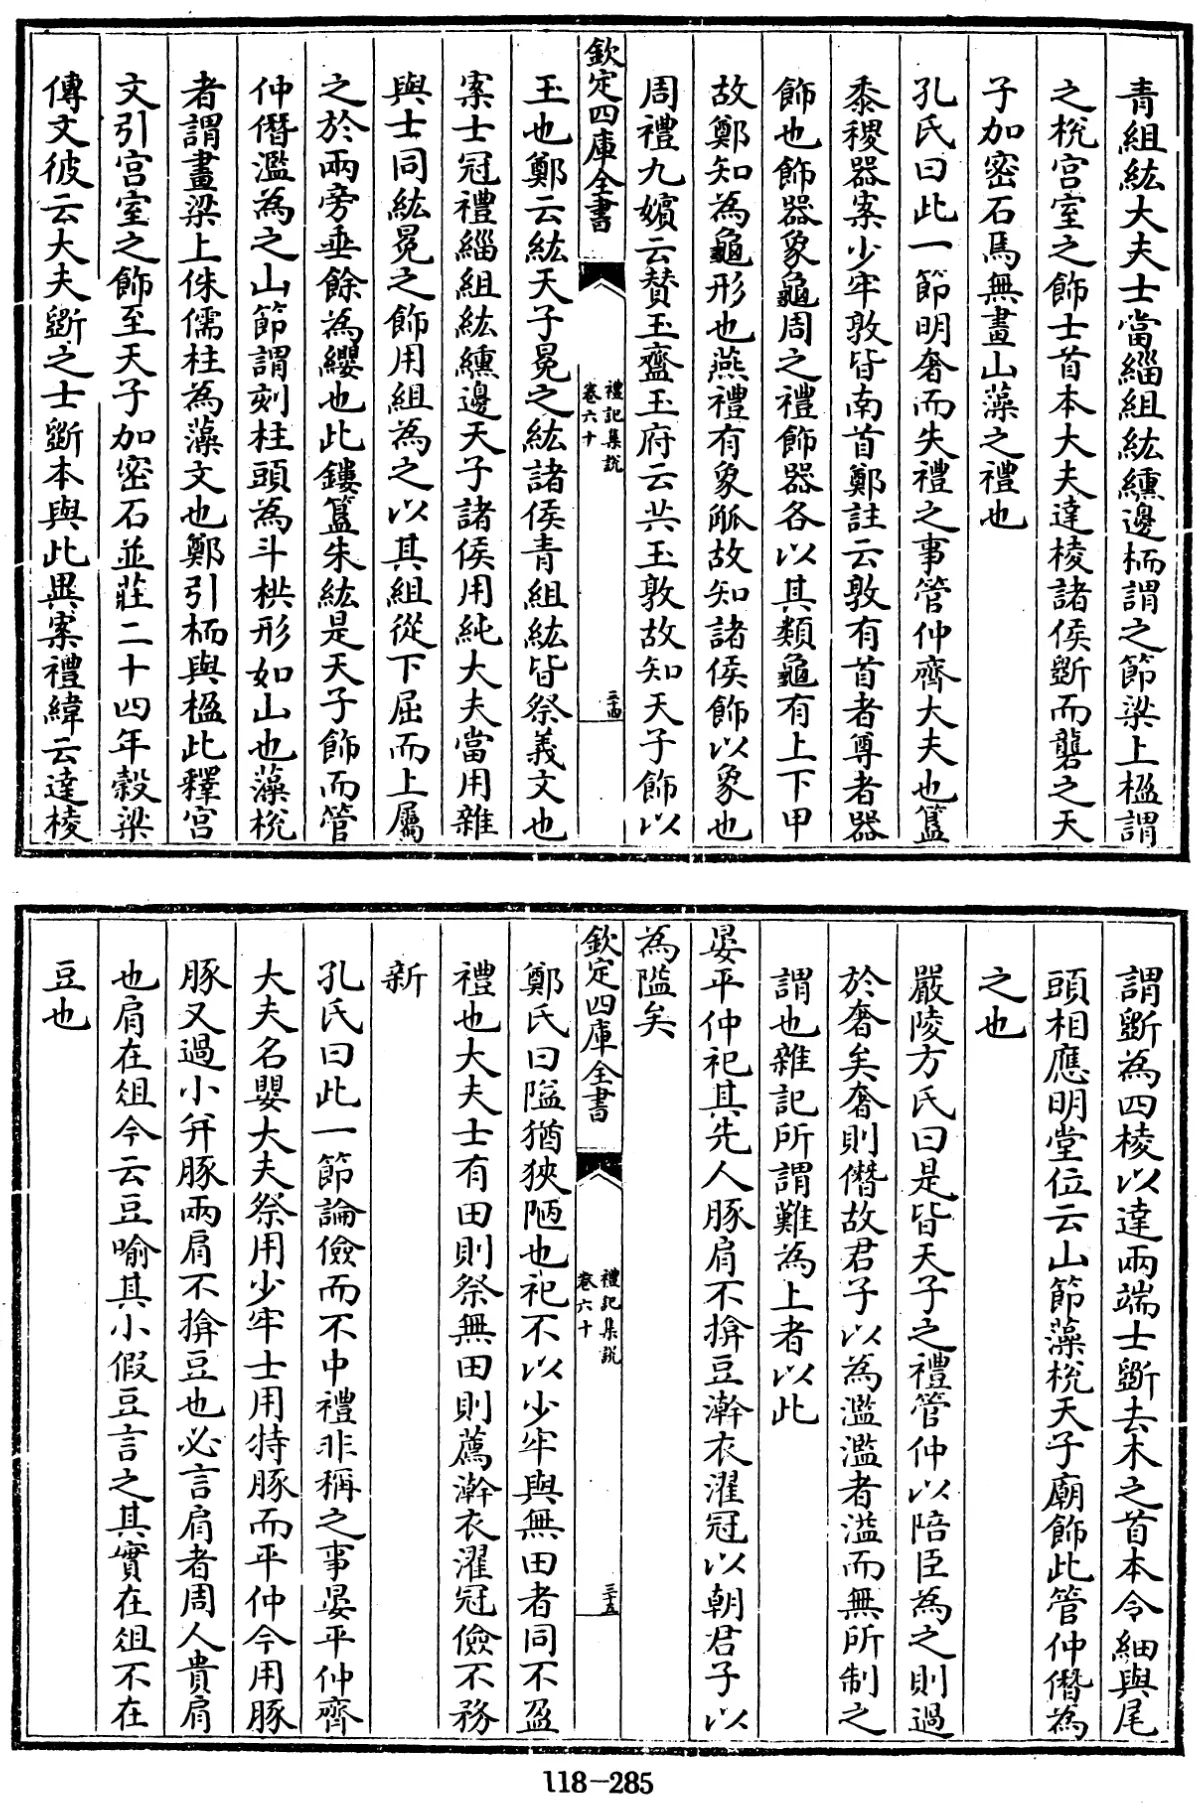 青組紘大夫士當緇組紘纁邊栭謂之節梁上楹謂
之梲宮室之飾士首本大夫達棱諸侯斲而礱之天
子加密石焉無畫山藻之禮也
孔氏曰此一節明奢而失禮之事管仲齊大夫也簋
黍稷器案少牢敦皆南首鄭註云敦有首者尊者器
飾也飾器象龜周之禮飾器各以其類龜有上下甲
故鄭知為龜形也燕禮有象觚故知諸侯飾以象也
周禮九嬪云賛玉齍玉府云共玉敦故知天子飾以
欽定四庫全書
禮記集說
卷六十
三十四
玉也鄭云紘天子冕之紘諸侯青組紘皆祭義文也
案士冠禮緇組紘纁邊天子諸侯用純大夫當用雜
與士同紘冕之飾用組為之以其組從下屈而上屬
之於兩旁垂餘為纓也此鏤簋朱紘是天子飾而管
仲僭濫為之山節謂刻柱頭為斗栱形如山也藻梲
者謂畫梁上侏儒柱為藻文也鄭引栭與楹此釋宮
文引宮室之飾至天子加密石並莊二十四年穀梁
傳文彼云大夫斲之士斲本與此異案禮緯云達棱
謂斲為四棱以達兩端士斲去木之首本令細與尾
頭相應明堂位云山節藻梲天子廟飾此管仲僭為
之也
嚴陵方氏曰是皆天子之禮管仲以陪臣為之則過
於奢矣奢則僭故君子以為濫濫者溢而無所制之
謂也雜記所謂難為上者以此
晏平仲祀其先人豚肩不揜豆澣衣濯冠以朝君子以
為隘矣
欽定四庫全書
禮記集說
卷六十
三十五
鄭氏曰隘猶狹陋也祀不以少牢與無田者同不盈
禮也大夫士有田則祭無田則薦澣衣濯冠儉不務
新
孔氏曰此一節論儉而不中禮非稱之事晏平仲齊
大夫名嬰大夫祭用少牢士用特豚而平仲今用豚
豚又過小幷豚兩肩不揜豆也必言肩者周人貴肩
也肩在俎今云豆喻其小假豆言之其實在俎不在
豆也
118-285